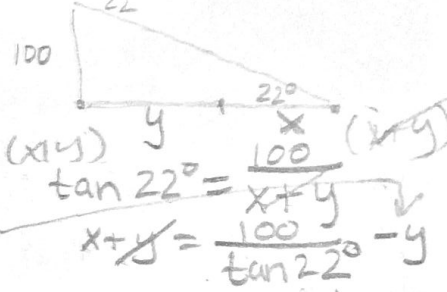 22
100
22°
y x
(x+y) tan 22° = 100/(x+y) (x+y)
x+y = 100/tan 22° - y